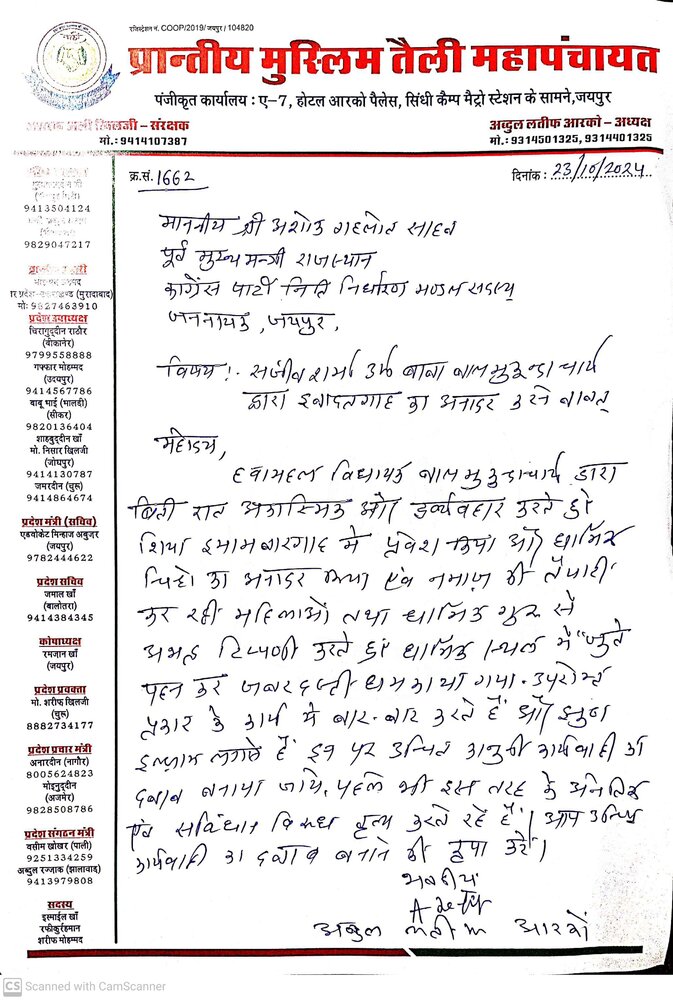 रजिस्ट्रेशन नं. COOP/2019/जयपुर / 104820
प्रान्तीय मुस्लिम तैली महापंचायत
पंजीकृत कार्यालय : ए-7, होटल आरको पैलेस, सिंधी कैम्प मैट्रो स्टेशन के सामने,जयपुर
अली खिलजी - संरक्षक
मो.:9414107387
अब्दुल लतीफ आरको - अध्यक्ष
मो.: 9314501325, 9314401325
क्र.सं. 1662
दिनांक : 23/10/2024
9413504124
9829047217
(मुरादाबाद)
मो: 9827463910
प्रदेश उपाध्यक्ष
चिरागुद्दीन राठौर
(बीकानेर)
9799558888
गफ्फार मोहम्मद
(उदयपुर)
9414567786
बाबू भाई (मालडी)
(सीकर)
9820136404
शाहबुद्दीन खाँ
मो. निसार खिलजी
(जोधपुर)
9414130787
जमरदीन (चुरू)
9414864674
प्रदेश मंत्री (सचिव)
एडवोकेट मिन्हाज अबुजर
(जयपुर)
9782444622
प्रदेश सचिव
जमाल खाँ
(बालोतरा)
9414384345
कोषाध्यक्ष
रमजान खाँ
(जयपुर)
प्रदेश प्रवक्ता
मो. शरीफ खिलजी
(चुरू)
8882734177
प्रदेश प्रचार मंत्री
अनारदीन (नागौर)
8005624823
मोइनुद्दीन
(अजमेर)
9828508786
प्रदेश संगठन मंत्री
वसीम खोखर (पाली)
9251334259
अब्दुल रज्जाक (झालावाड़)
9413979808
सदस्य
इस्माईल खाँ
रफीकुर्रहमान
शरीफ मोहम्मद
माननीय श्री अशोक गहलोत साहब
पूर्व मुख्य मन्त्री राजस्थान
कांग्रेस पार्टी निति निर्धारण मण्डल सदस्य
जननायक, जयपुर,
विषय :- संजीव शर्मा उर्फ बाबा बालमुकुन्दाचार्य
द्वारा इबादतगाह का अनादर करने बाबत्
महोदय,
हवामहल विधायक बालमुकुन्दाचार्य द्वारा
बिती रात अकास्मिक और दुर्व्यवहार करते हुए
शिया इमामबारगाह मे प्रवेश किया और धार्मिक
चिन्हो का अनादर किया एवं नमाज़ की तैयारी
कर रही महिलाओं तथा धार्मिक गुरु से
अभद्र टिप्पणी करते हुए धार्मिक स्थल में "जुते
पहन कर जबरदस्ती धमकाया गया. उपरोक्त
प्रकार के कार्य ये बार-बार करते हैं और झुठा
इल्ज़ाम लगाते हैं इन पर उचित कानुनी कार्यवाही का
दबाव बनाया जाये. पहले भी इस तरह के अनैतिक
एवं संविधान विरुध कृत्य करते रहे हैं। आप उचित
कार्यवाही का दबाव बनाने की कृपा करे।
भवदीय
अब्दुल लतीफ आरको
CS Scanned with CamScanner